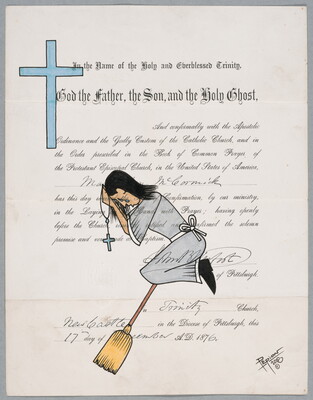 In the Name of the Holy and Everblessed Trinity,
God the Father, the Son, and the Holy Ghost,
And conformally with the Apostolic
Ordinance and the Godly Custom of the Catholic Church, and in
the Order prescribed in the Book of Common Prayer, of
the Protestant Episcopal Church, in the United States of America,
McCormick
has this day Confirmation, by our ministry,
in the Laying Hands with Prayer; having openly
before the Church confirmed the solemn
promise and vow made Baptism.
of Pittsburgh.
in Trinity Church,
New Castle in the Diocese of Pittsburgh, this
17 day of December A.D. 1876
©